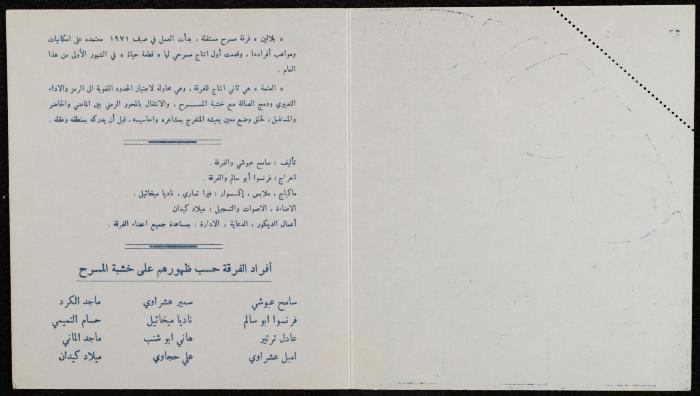 « بلالين » فرقة مسرح مستقلة ، بدأت العمل في صيف ١٩٧١ معتمده على امكانيات
ومواهب أفرادها ، وقدمت أول انتاج مسرحي لها « قطعة حياة » في الشهور الأولى من هذا
العام .
« العتمة » هي ثاني انتاج للفرقة ، وهي محاولة لاجتياز الحدود اللغوية الى الرمز والاداء
التعبيري ودمج الصالة مع خشبة المســـرح ، والانتقال بالمحور الزمني بين الماضي والحاضر
والمستقبل ، لخلق وضع معين يعيشه المتفرج بمشاعره واحاسيسه ، قبل أن يدركه بمنطقه وعقله .
تأليف : سامح عبوشي والفرقة .
اخراج : فرنسوا أبو سالم والفرقة .
ماكياج ، ملابس ، إكسسوار : فيرا تماري ، ناديا ميخائيل .
الاضاءة ، الاصوات والتسجيل : ميلاد كيدان
أعمال الديكور ، الدعاية ، الادارة : بمساعدة جميع اعضاء الفرقة .
أفراد الفرقة حسب ظهورهم على خشبة المسرح
سامح عبوشي سمير عشراوي ماجد الكرد
فرنسوا ابو سالم ناديا ميخائيل حسام التميمي
عادل ترتير هاني ابو شنب ماجد الماني
اميل عشراوي علي حجاوي ميلاد كيدان